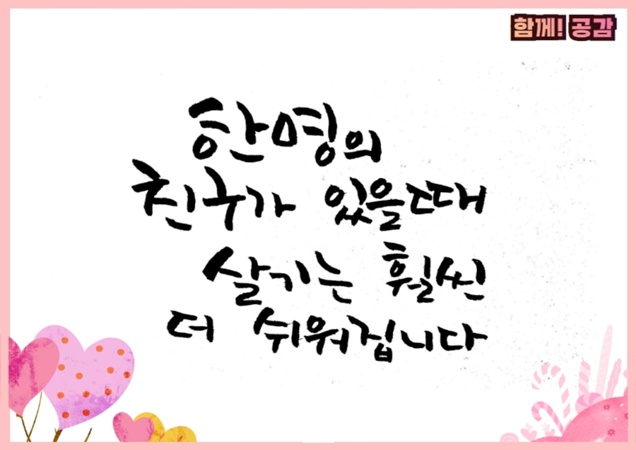 함께! 공감
한명의
친구가 있을때
살기는 훨씬
더 쉬워집니다